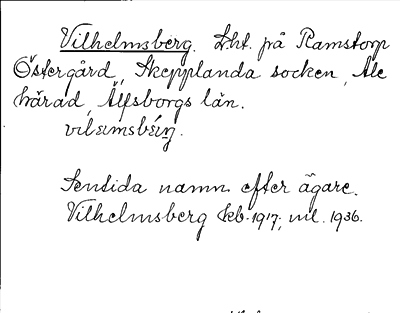 Vilhelmsberg. Lht. på Ramstorp
Östergård, Skepplanda socken, Ale
härad, Älfsborgs län.
vilɛmsbéry.
Sentida namn efter ägare.
Vilhelmsberg Jeb. 1917, ml. 1936.